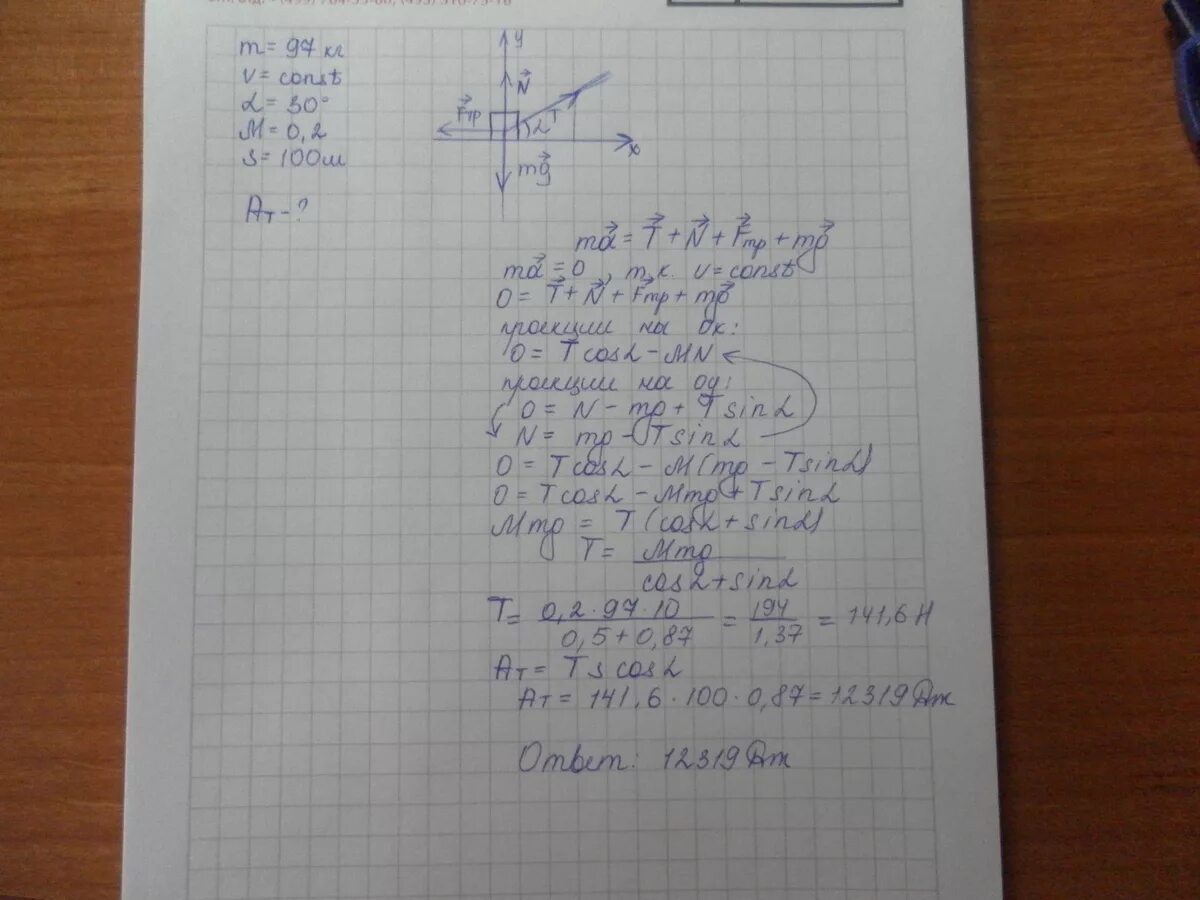 m = 97 кг
v = const
α = 30°
M = 0,2
S = 100м
Aт - ?
y
N
Fтр
T
α
x
mg
ma = T + N + Fтр + mg
ma = 0, т.к. v = const
0 = T + N + Fтр + mg
проекции на ох:
0 = T cosα - MN
проекции на оу:
0 = N - mg + T sinα
N = mg - T sinα
0 = T cosα - M(mg - T sinα)
0 = T cosα - Mmg + T sinα
Mmg = T (cosα + sinα)
T = Mmg / cosα + sinα
T = 0,2 · 97 · 10 / 0,5 + 0,87 = 194 / 1,37 = 141,6 Н
Aт = T s cosα
Aт = 141,6 · 100 · 0,87 = 12319 Дж
Ответ: 12319 Дж